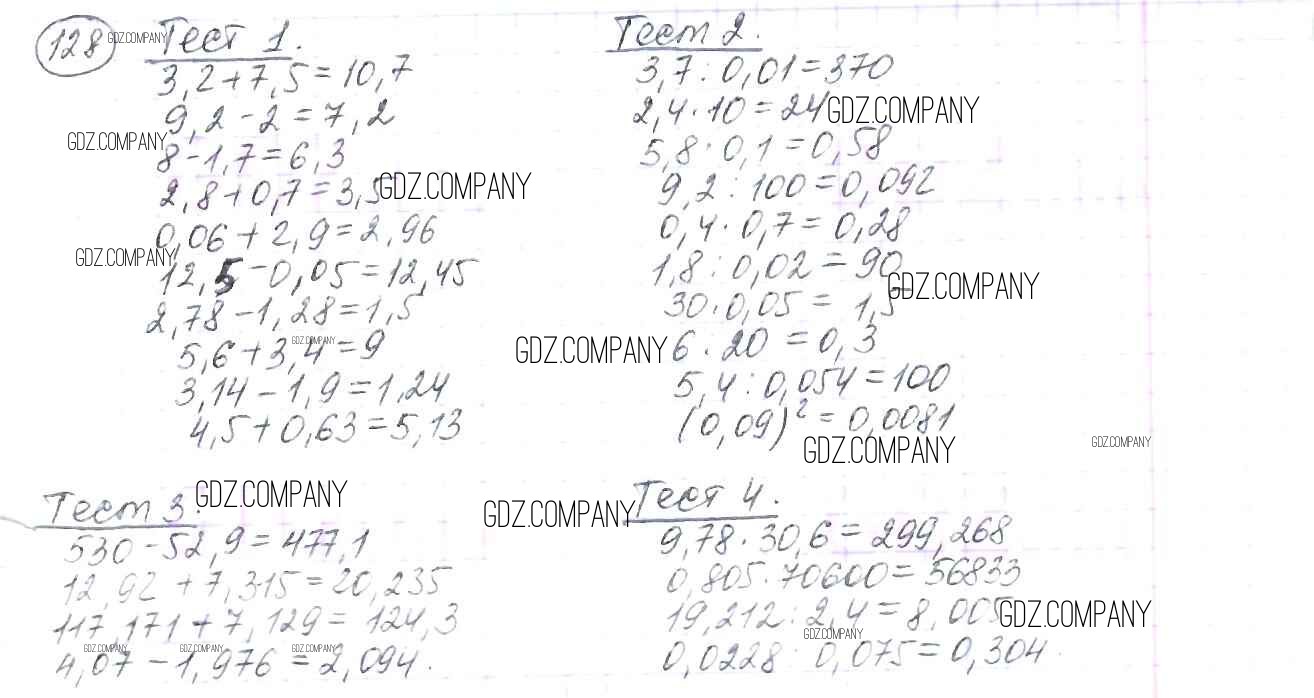 128 GDZ.COMPANY Тест 1.
3,2 + 7,5 = 10,7
9,2 - 2 = 7,2
GDZ.COMPANY
8 - 1,7 = 6,3
2,8 + 0,7 = 3,5 GDZ.COMPANY
0,06 + 2,9 = 2,96
GDZ.COMPANY
12,5 - 0,05 = 12,45
2,78 - 1,28 = 1,5
GDZ.COMPANY
5,6 + 3,4 = 9
3,14 - 1,9 = 1,24
4,5 + 0,63 = 5,13
Тест 2.
3,7 : 0,01 = 370
2,4 · 10 = 24 GDZ.COMPANY
5,8 · 0,1 = 0,58
9,2 : 100 = 0,092
0,4 · 0,7 = 0,28
1,8 : 0,02 = 90
GDZ.COMPANY
30 · 0,05 = 1,5
GDZ.COMPANY 6 · 20 = 0,3
5,4 : 0,054 = 100
(0,09)² = 0,0081
GDZ.COMPANY
GDZ.COMPANY
Тест 3. GDZ.COMPANY
530 - 52,9 = 477,1
12,92 + 7,315 = 20,235
117,171 + 7,129 = 124,3
GDZ.COMPANY GDZ.COMPANY GDZ.COMPANY
4,07 - 1,976 = 2,094.
GDZ.COMPANY Тест 4.
9,78 · 30,6 = 299,268
0,805 · 70600 = 56833
19,212 : 2,4 = 8,005 GDZ.COMPANY
GDZ.COMPANY
0,0228 : 0,075 = 0,304.